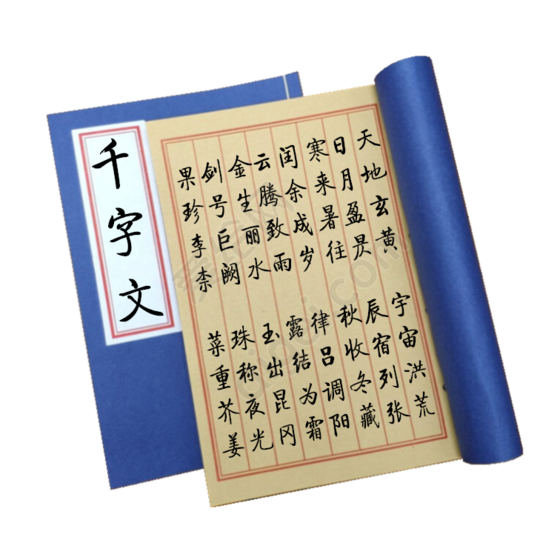 千字文
天地玄黄 宇宙洪荒
日月盈昃 辰宿列张
寒来暑往 秋收冬藏
闰余成岁 律吕调阳
云腾致雨 露结为霜
金生丽水 玉出昆冈
剑号巨阙 珠称夜光
果珍李柰 菜重芥姜